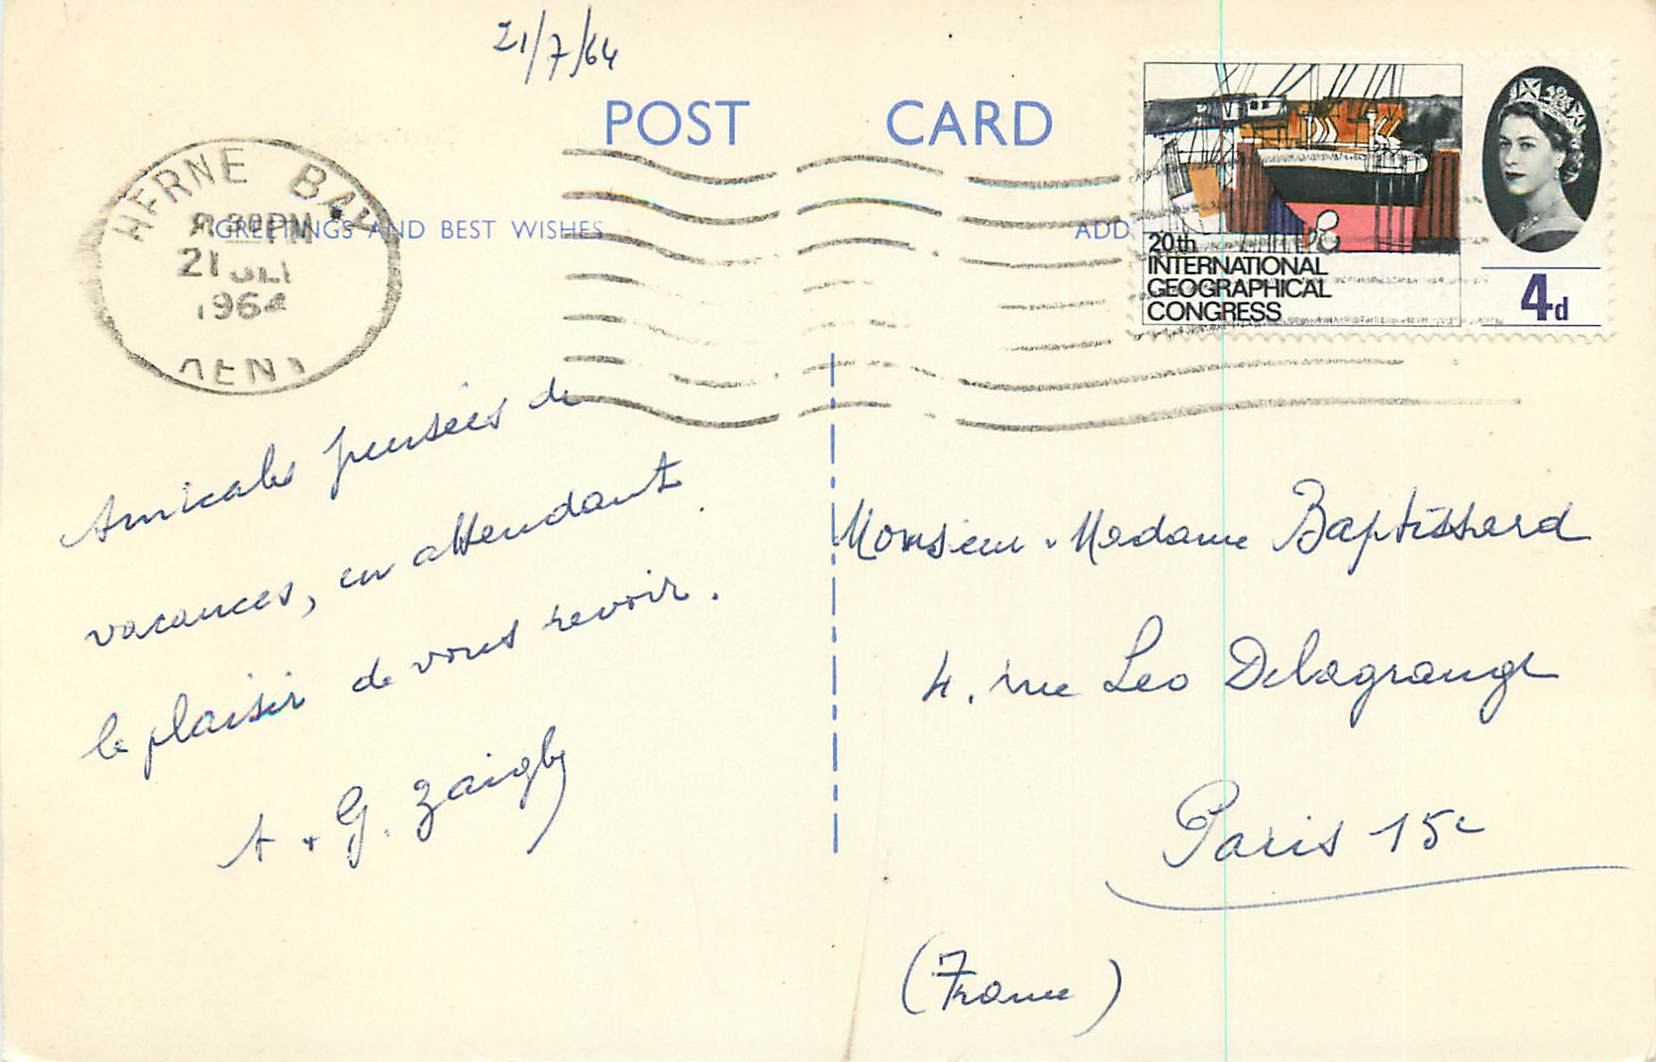 21/7/64
POST CARD
HERNE BAY
8.30PM
21 JLY
1964
KENT
GREETINGS AND BEST WISHES
ADD
20th
INTERNATIONAL
GEOGRAPHICAL
CONGRESS
4d
Amicales pensées de
vacances, en attendant
le plaisir de vous revoir.
A + G. Zaigly
Monsieur. Madame Baptissard
4. rue Leo Delagrange
Paris 15e
(France)